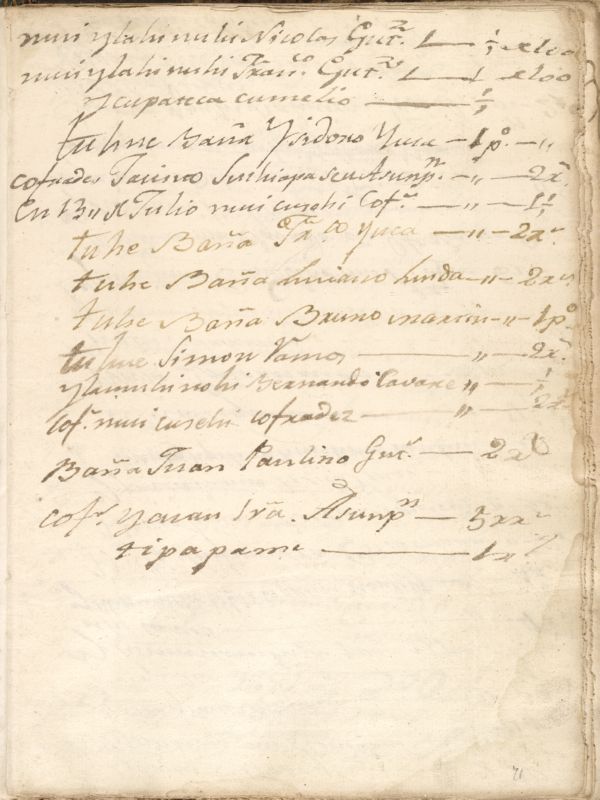 nuui ylahi nuhi Nicolas Gutrz L — ½ eloo
nuui ylahi nuhi Franco Gutrz L — 1 eloo
Ycupateca cumelio — ½
tuhue Baña Ysidoro Yuca — 1po — "
cofrades Tacinto Suchiapa scu Asunpn — " — 2xs
En 13 " Julio nuui cuschi Cofr — " — 1½
tuhe Baña Franco Yuca — " — 2xs
tuhe Baña Luciano Linda — " — 2xs
tuhe Baña Bruno martin — " — 1po
tuhue Simon Ramos — " — 2xs
ylaiñuhi nohi Bernando — " — ½
Cofr nuui cuschi cofradez — " — 2xs
Baña Juan Paulino Gutz — 2xs
cofr yauau Sra. Asunpn — 5xxs
tipapame — 1x
71